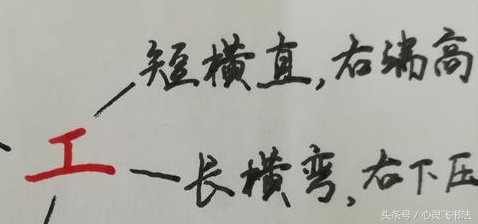 短横直,右端高
工
长横弯,右下压
头条号/心灵飞书法